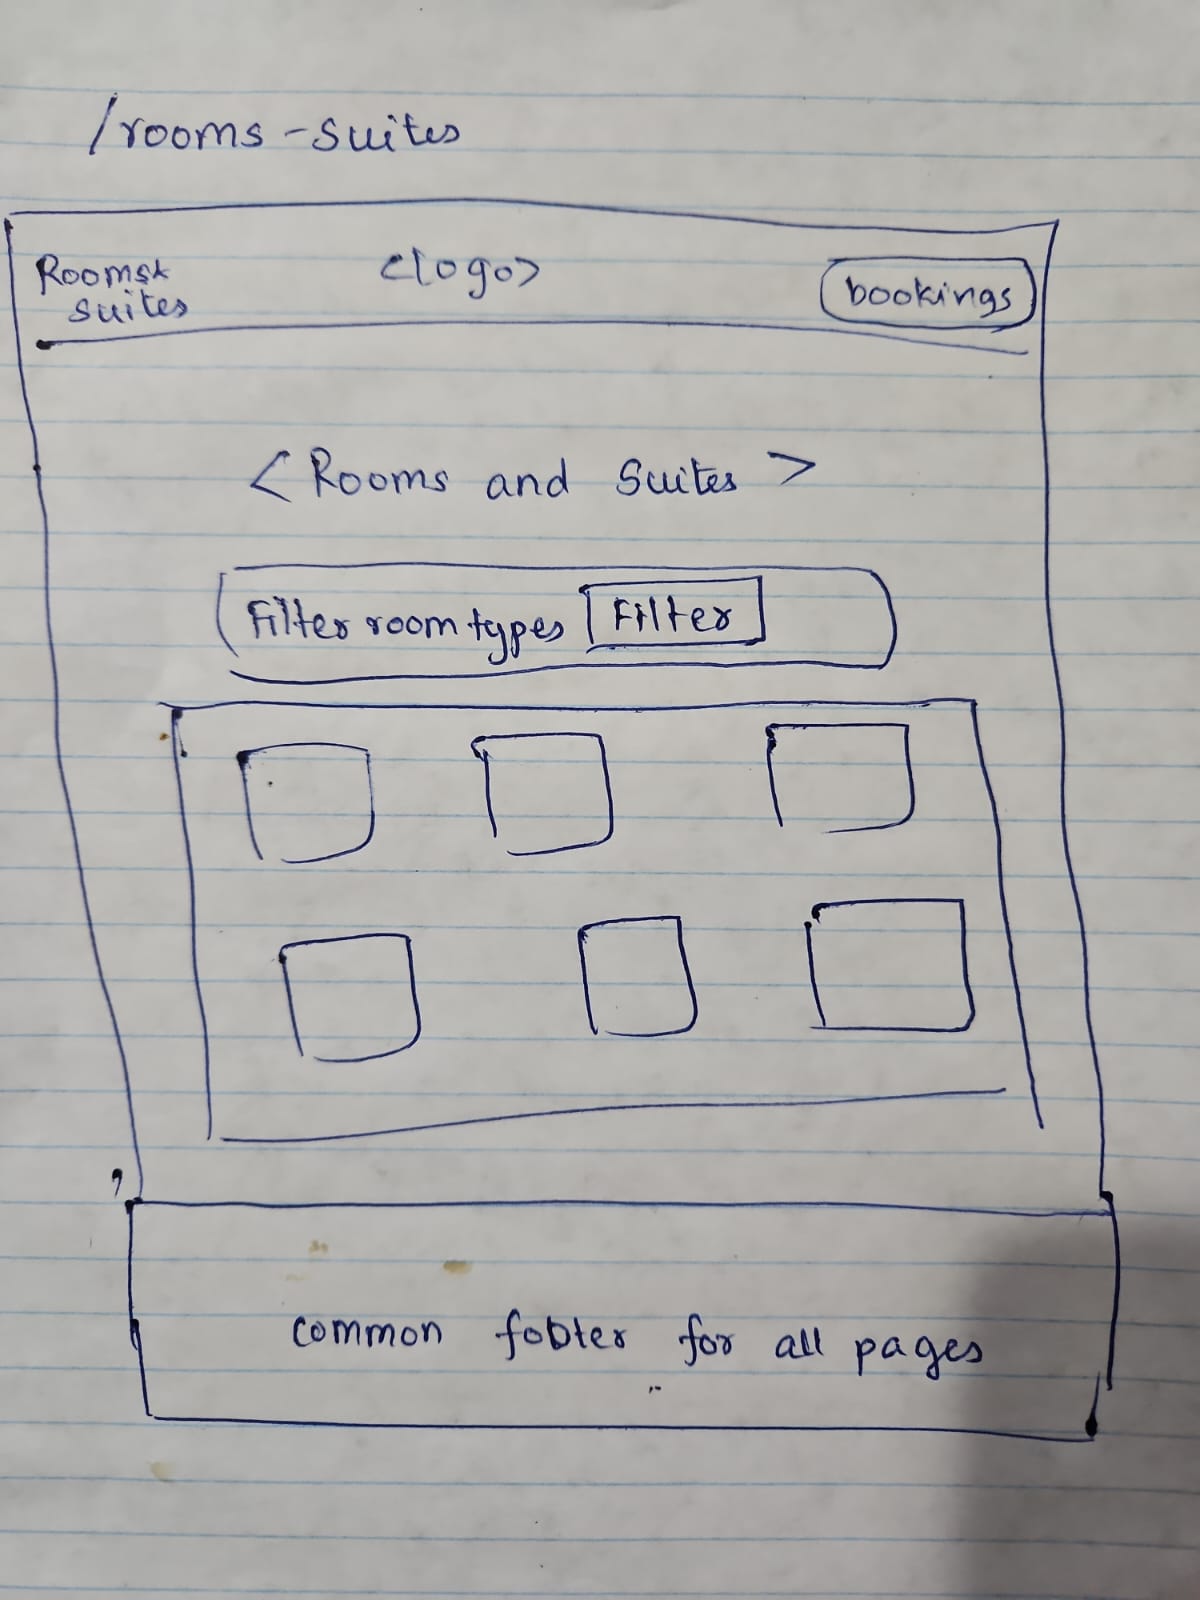 /rooms-suites
Rooms&
suites
<logo>
bookings
< Rooms and Suites >
Filter room types
Filter
common footer for all pages